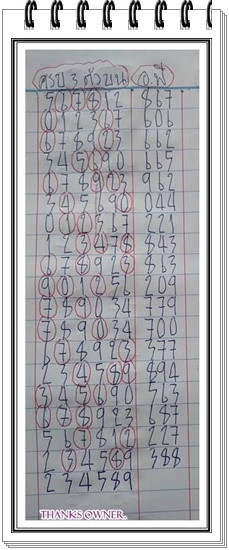 ครบ 3 ตัวบน
567812 867
012367 606
678923 662
345690 665
678923 962
345690 044
012367 221
123478 843
678923 863
901256 209
789034 779
789034 700
678923 377
234589 894
345690 563
678923 687
567812 227
234589 388
234589
THANKS OWNER.